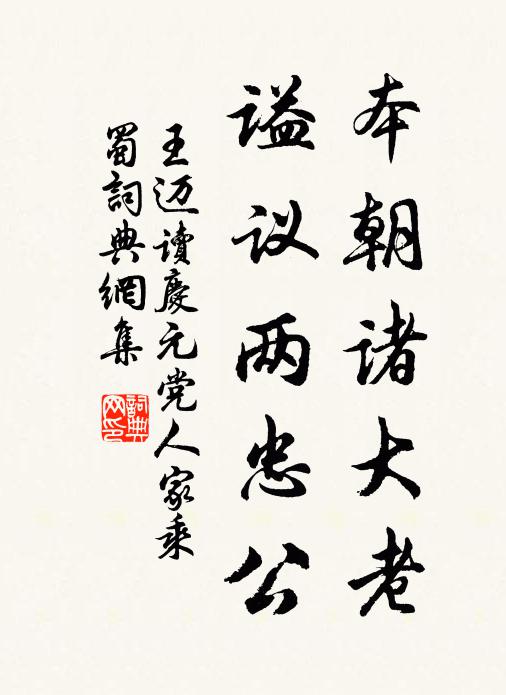 本朝诸大老
谥议两忠公
王迈读慶元党人家乘
蜀詞典網集
詞典网印